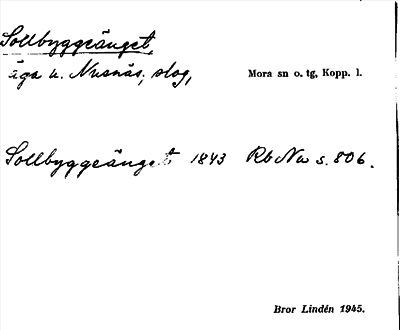 Sollbyggeänget,
äga u. Nusnäs, slog, Mora sn o. tg, Kopp. l.
Sollbyggeänget 1843 Rb Nu s. 806.
Bror Lindén 1945.